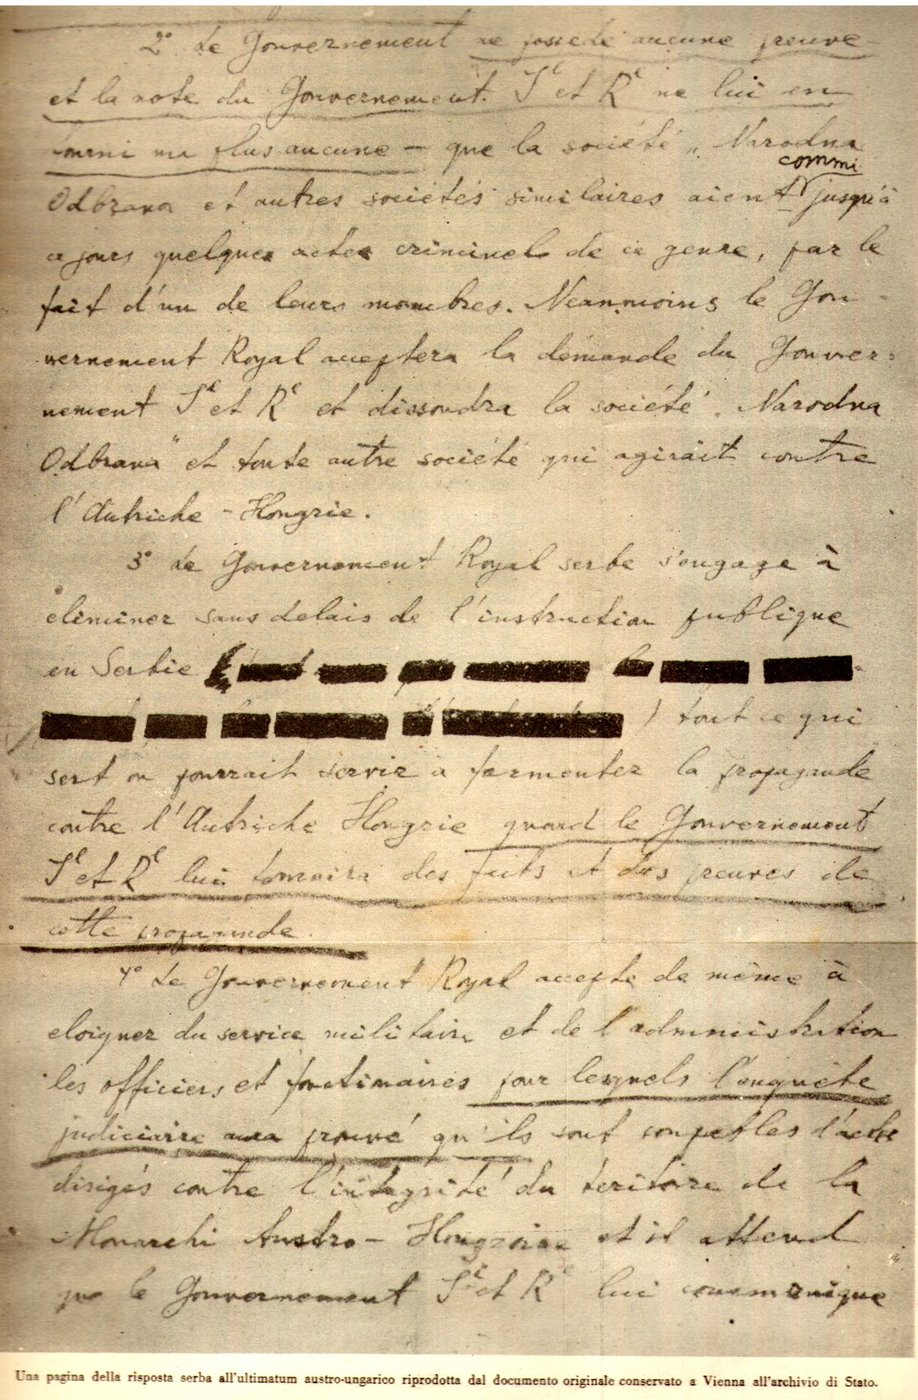 2° Le Gouvernement ne possede aucune preuve
et la note du Gouvernement. Iᵉ et Rᵉ ne lui en
plus aucune – que la société „ Narodna
commi
Odbrana et autres sociétés similaires aient jusqu'à
ce jours quelques actes criminels de ce genre, par le
fait d'un de leurs membres. Neanmoins le Gou-
vernement Royal acceptera la démande du Gouver-
nement Iᵉ et Rᵉ et dissoudra la société „ Narodna
Odbrana" et toute autre société qui agirait contre
l'Autriche – Hongrie.
3° Le Gouvernement Royal serbe s'engage à
eliminer sans delais de l'instruction publique
en Serbie
) tout ce qui
sert ou pourrait servir a fermenter la propagande
contre l'Autriche Hongrie quand le Gouvernement
Iᵉ et Rᵉ lui des faits et des preuves de
cette propagande.
4° Le Gouvernement Royal accepte de même à
eloigner du service militaire et de l'administration
les officiers et fonctionnaires pour lesquels l'enquête
judiciaire aura prouvé qu'ils sont coupables d'acte
dirigés contre l'intégrité du teritoire de la
Monarchi Austro – Hongroise et il attend
que le Gouvernement Iᵉ et Rᵉ lui communique
Una pagina della risposta serba all'ultimatum austro-ungarico riprodotta dal documento originale conservato a Vienna all'archivio di Stato.